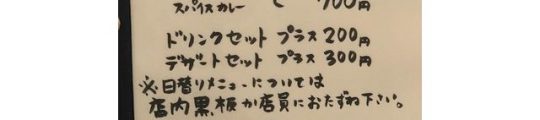 スパイスカレー 900円
ドリンクセット プラス 200円
デザートセット プラス 300円
※日替りメニューについては
店内黒板か店員におたずね下さい。